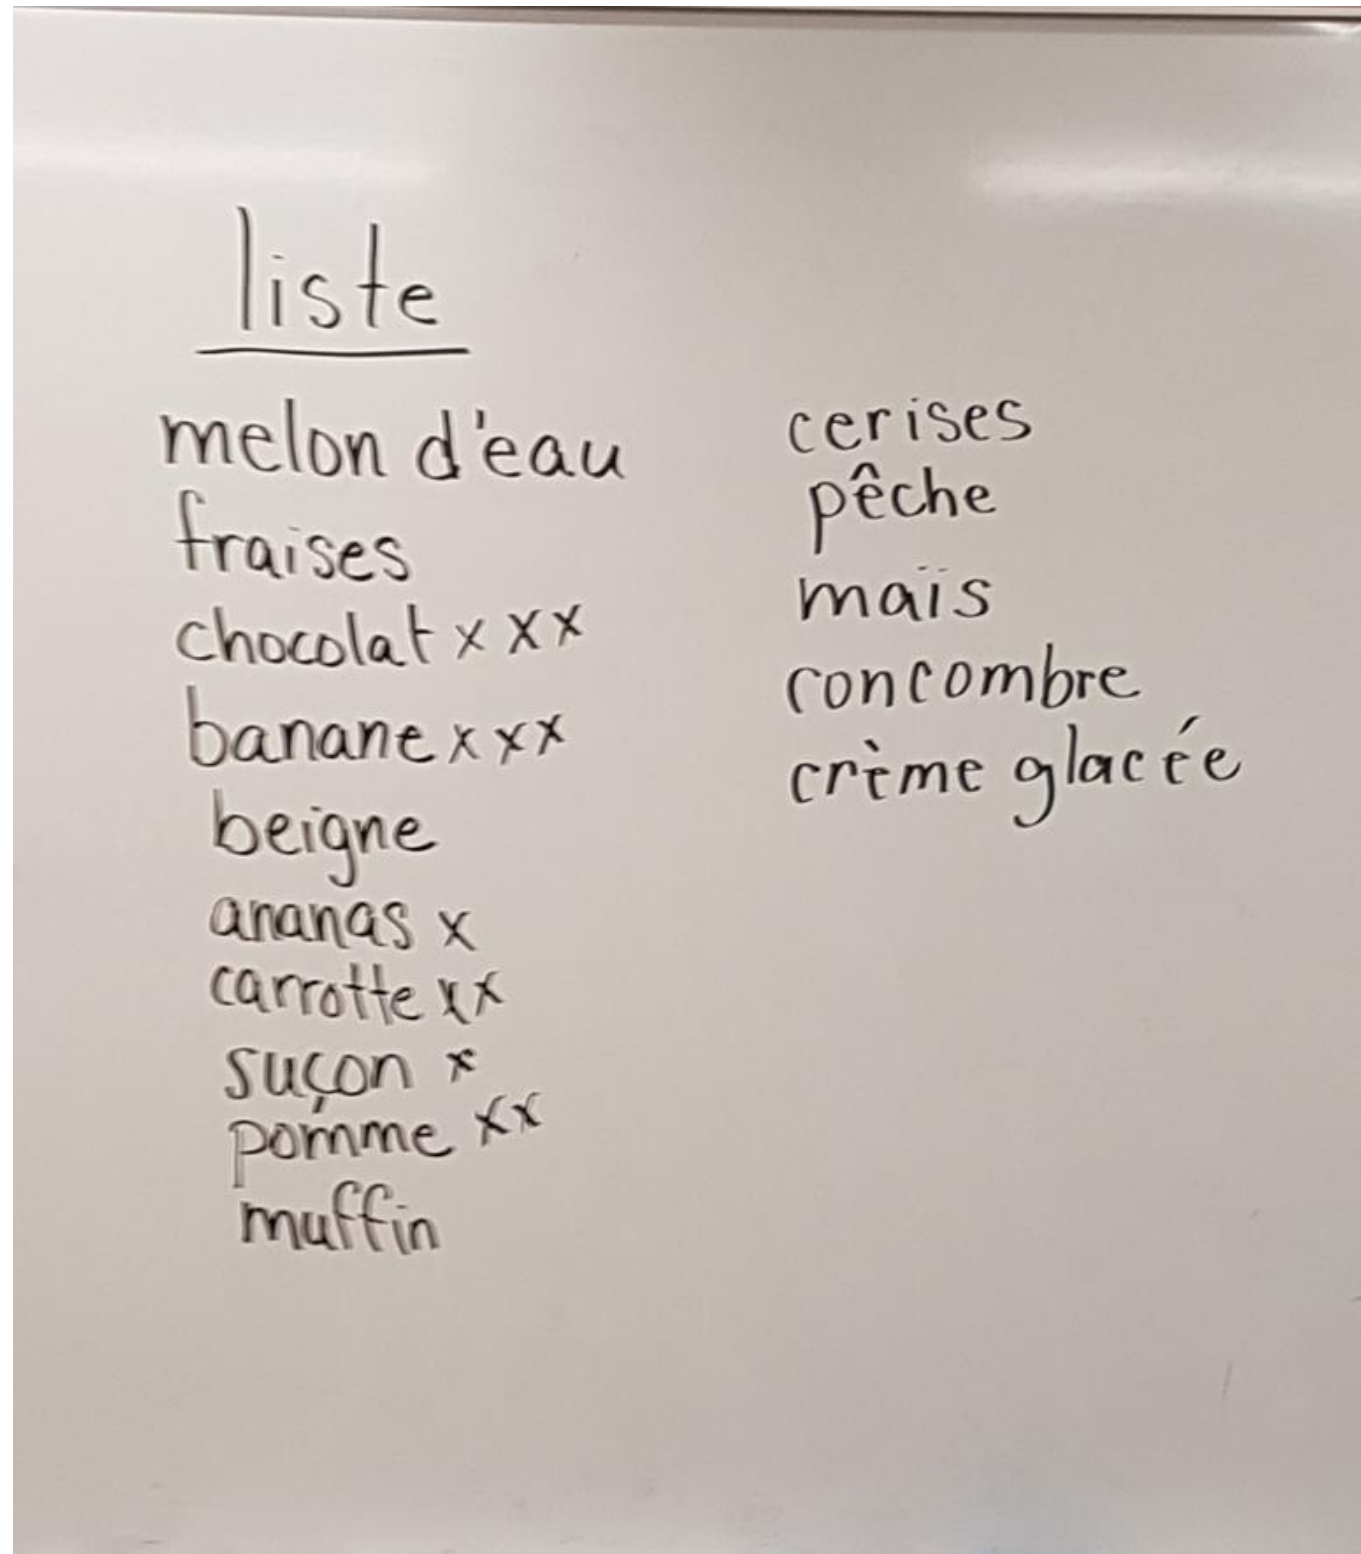 liste
melon d'eau
fraises
chocolat x x x
banane x x x
beigne
ananas x
carrotte x x
suçon x
pomme x x
muffin
cerises
pêche
maïs
concombre
crème glacée